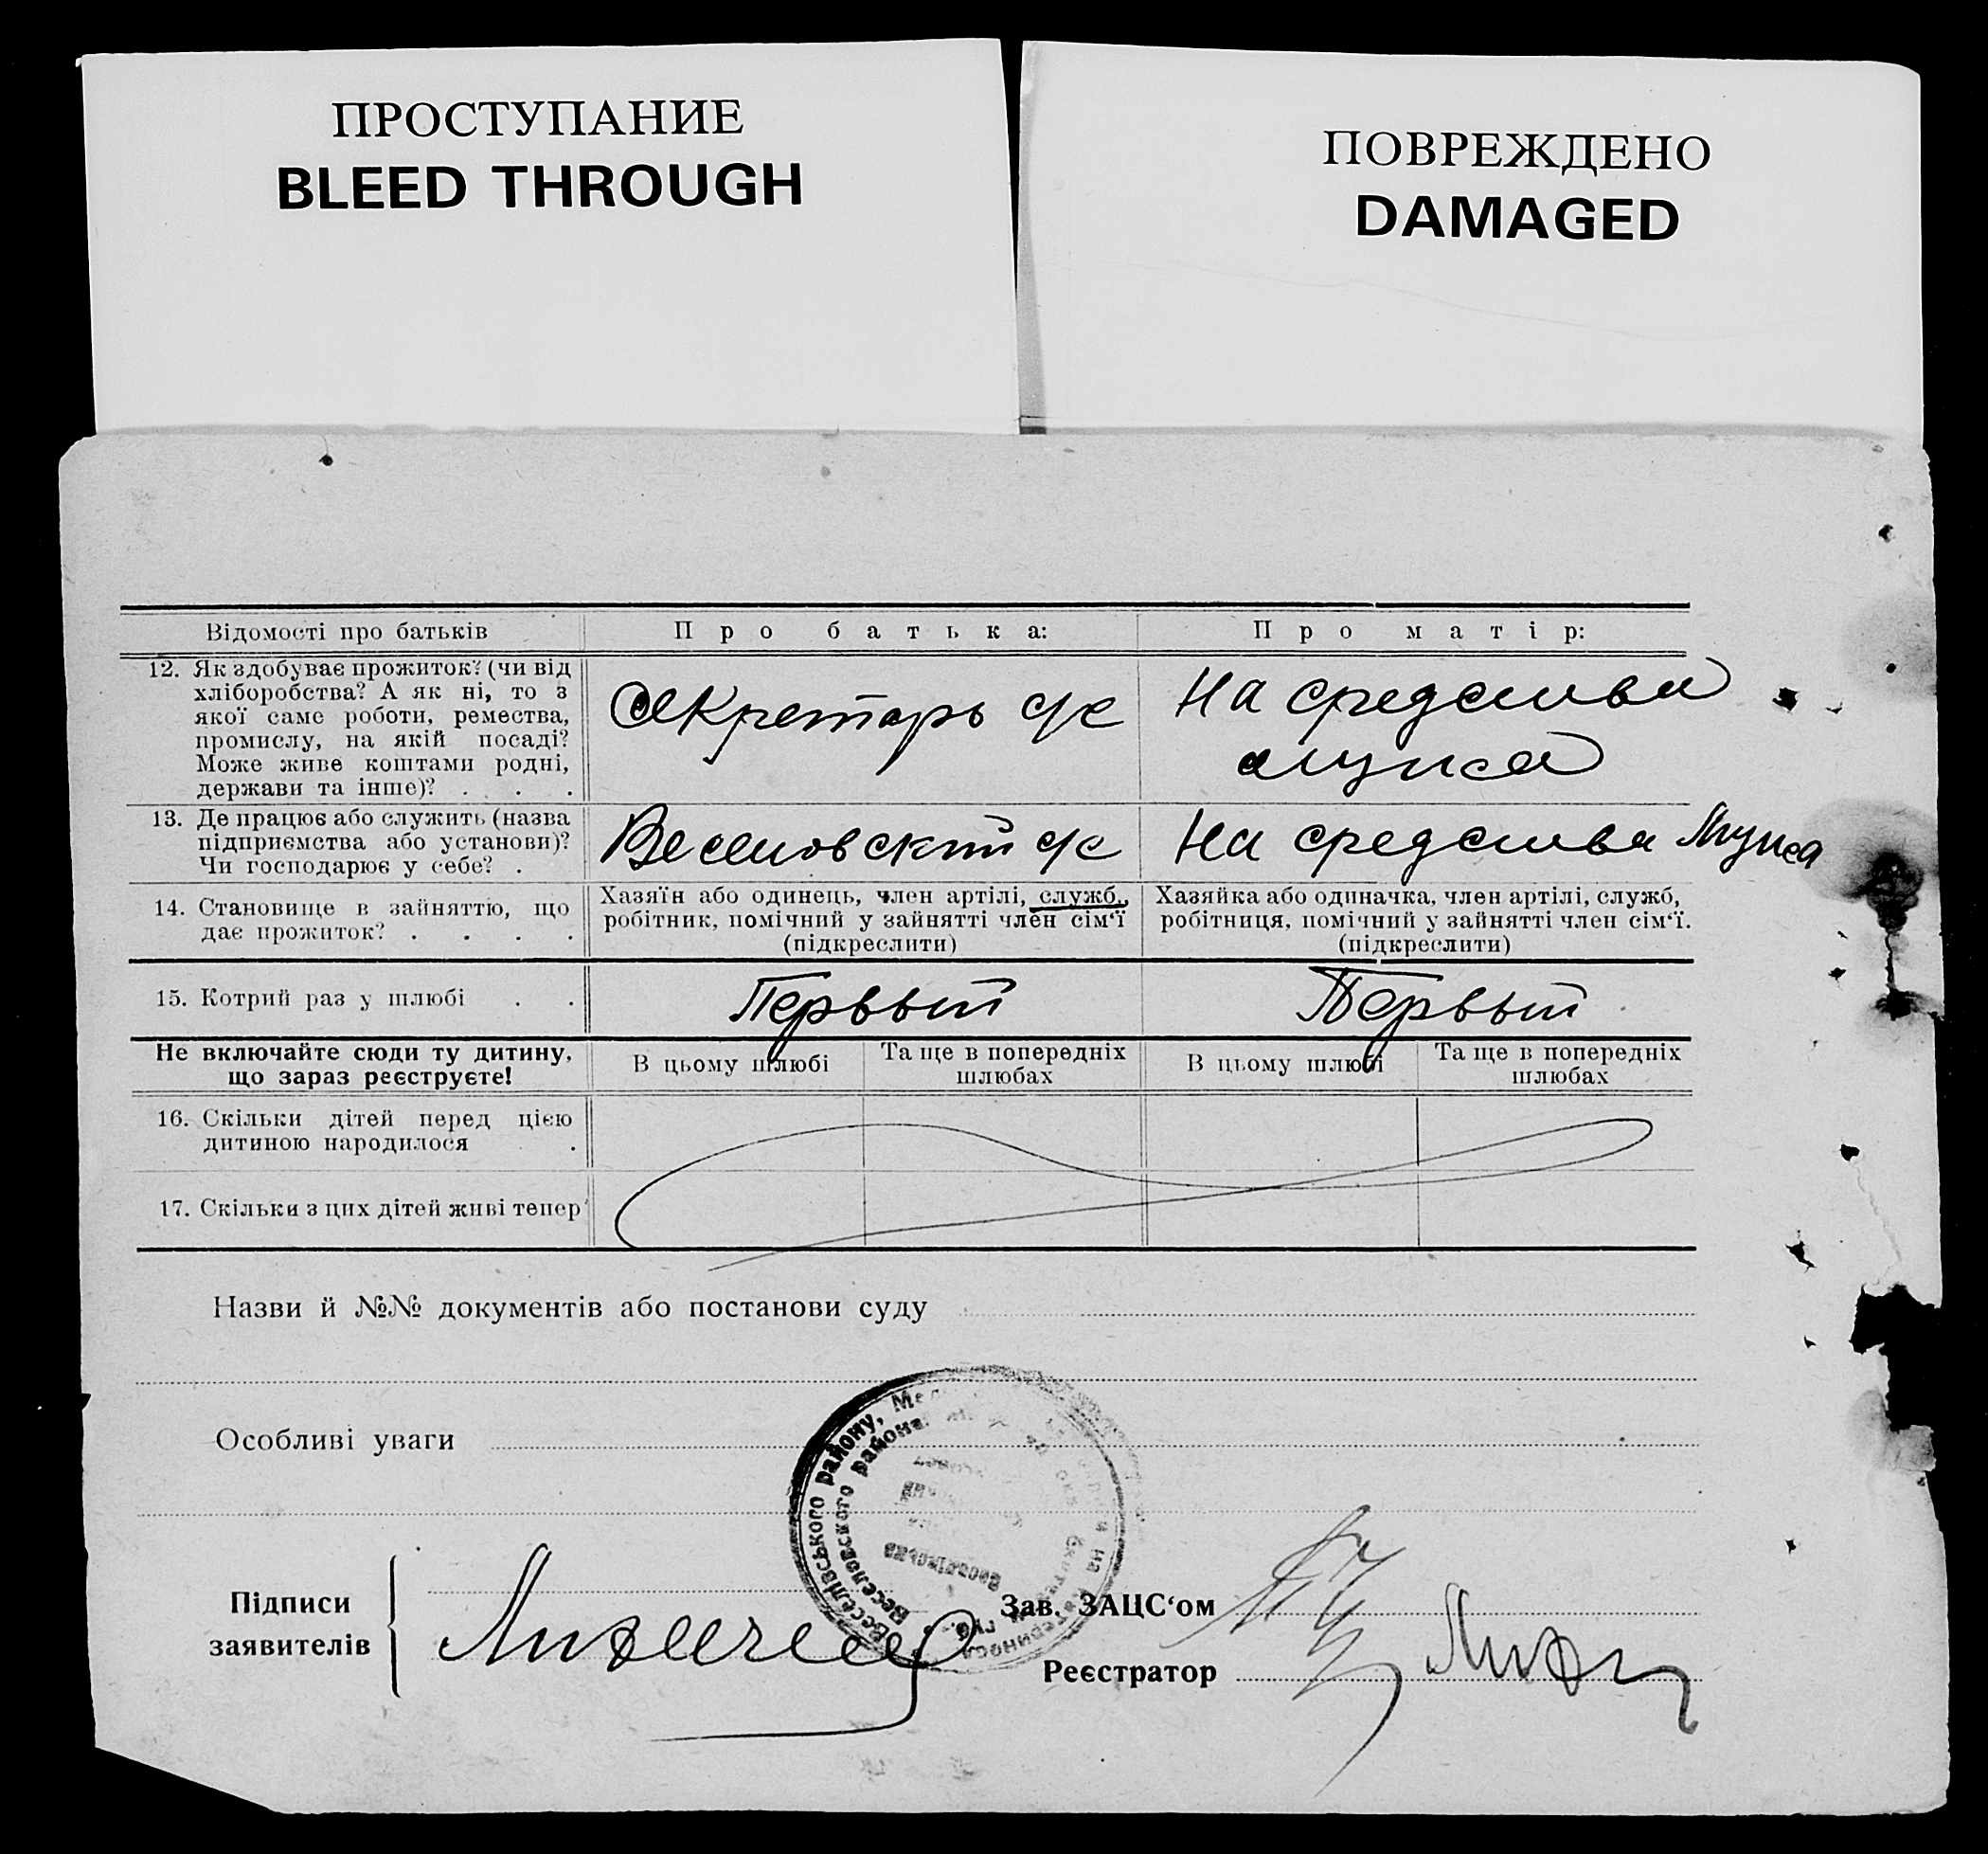 ПРОСТУПАНИЕ
BLEED THROUGH
ПОВРЕЖДЕНО
DAMAGED
Відомості про батьків
Про батька:
Про матір:
12. Як здобуває прожиток? (чи від
хліборобства? А як ні, то з
якої саме роботи, ремества,
промислу, на якій посаді?
Може живе коштами родні,
держави та інше)? . . .
Секретарь с/с
На средства
мужа
13. Де працює або служить (назва
підприємства або установи)?
Чи господарює у себе? .
Веселовский с/с
На средства мужа
14. Становище в зайняттю, що
дає прожиток? . . . .
Хазяїн або одинець, член артілі, служб.,
робітник, помічний у зайнятті член сім'ї
(підкреслити)
Хазяйка або одиначка, член артілі, служб,
робітниця, помічний у зайнятті член сім'ї.
(підкреслити)
15. Котрий раз у шлюбі . .
Первый
Первый
Не включайте сюди ту дитину,
що зараз реєструєте!
В цьому шлюбі
Та ще в попередніх
шлюбах
В цьому шлюбі
Та ще в попередніх
шлюбах
16. Скільки дітей перед цією
дитиною народилося .
17. Скільки з цих дітей живі тепер
Назви й №№ документів або постанови суду
Особливі уваги
Веселівського району,
Веселовского
Підписи
заявителів
Зав. ЗАЦС'ом
Реєстратор